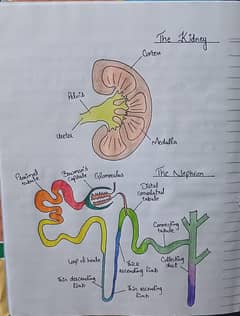 The Kidney
Cortex
Pelvis
Ureter
Medulla
The Nephron
Proximal
tubule
Bowman's
capsule
Glomerulus
Distal
convoluted
tubule
Connecting
tubule
Collecting
duct
Loop of henle
Thick
ascending limb
Thin descending
limb
Thin ascending
limb